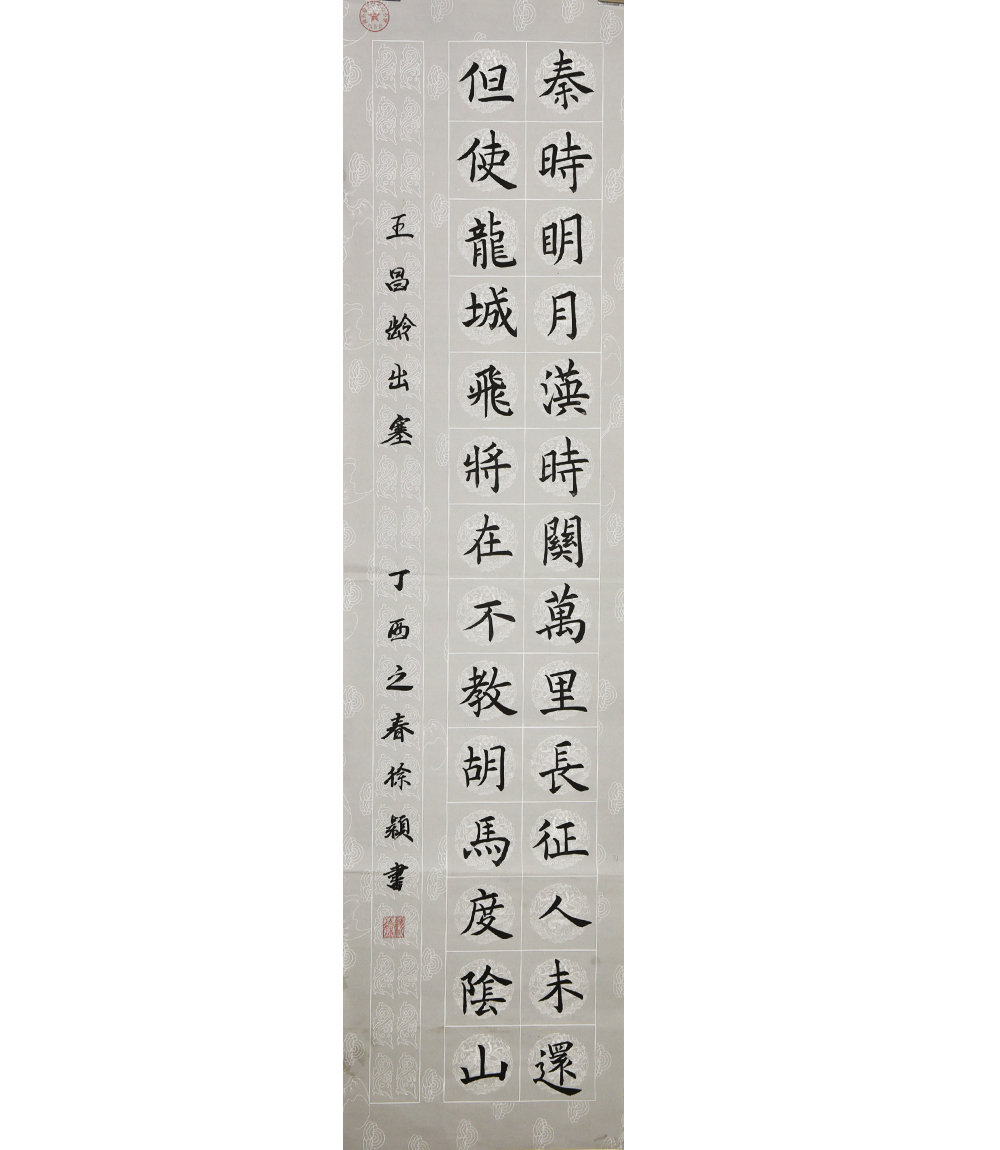 秦時明月漢時關萬里長征人未還
但使龍城飛將在不教胡馬度陰山
王昌龄出塞 丁酉之春徐颖書